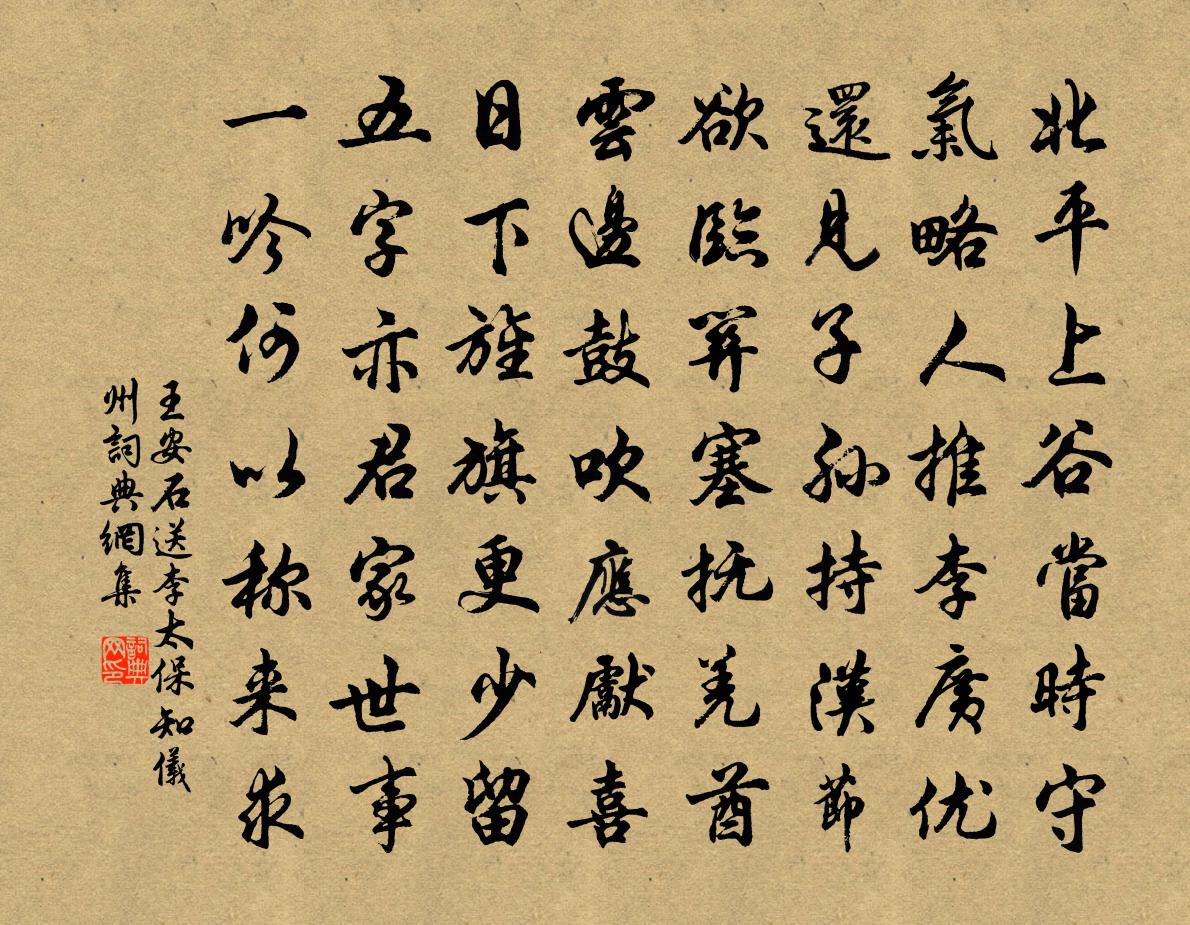 北平上谷當時守
氣略人推李廣优
還見子孫持漢節
欲臨關塞抚羌酋
雲邊鼓吹應獻喜
日下旌旗更少留
五字亦君家世事
一吟何以称来求
王安石送李太保知儀
州詞典網集
詞典
网印